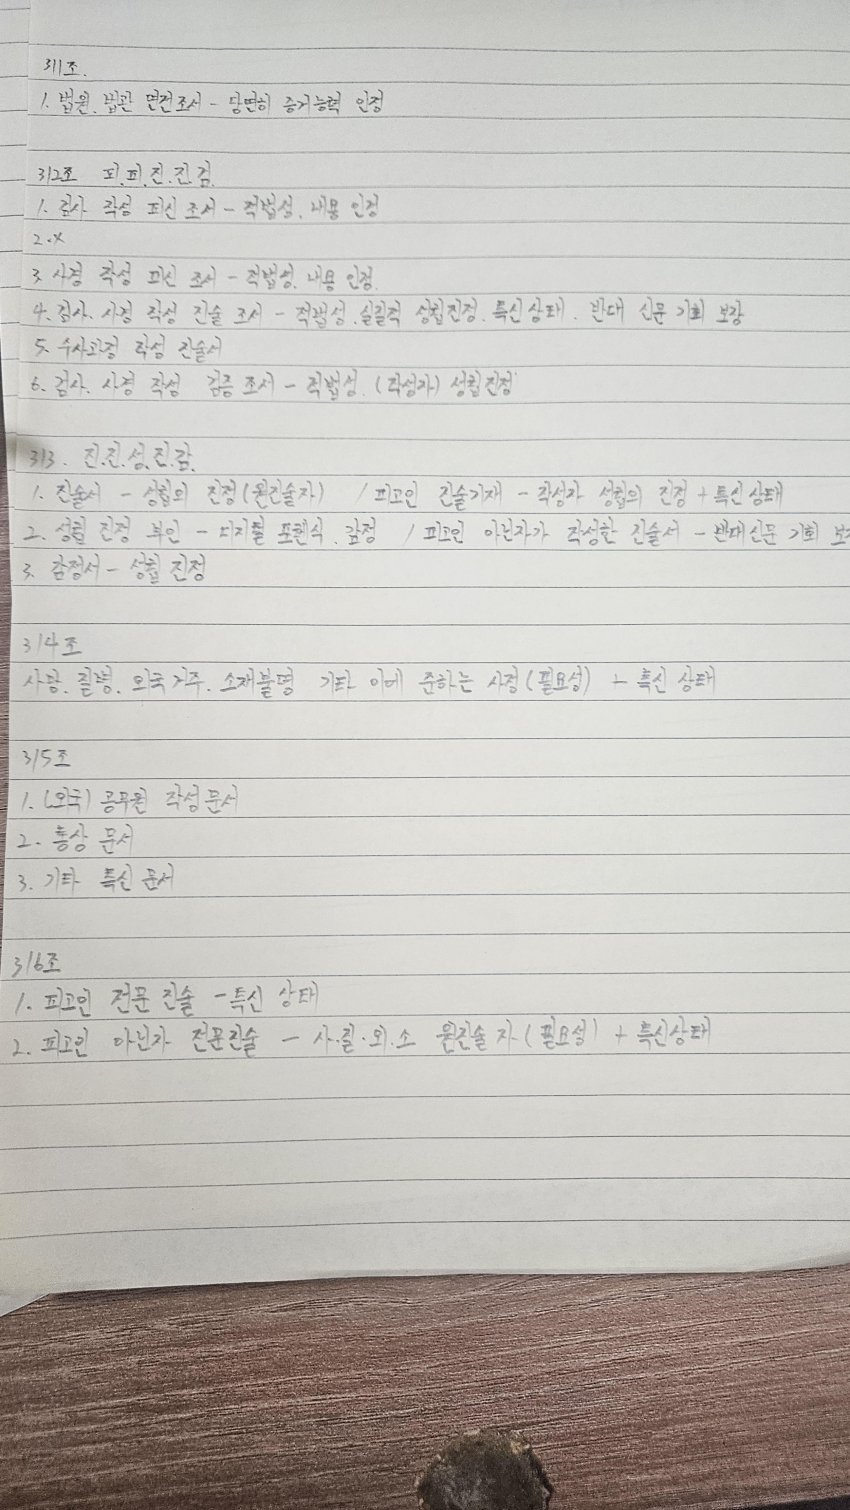 311조.
1. 법원, 법관 면전조서 - 당연히 증거능력 인정
312조 피.피.진.진.검.
1. 검사 작성 피신 조서 - 적법성. 내용 인정
2. X
3. 사경 작성 피신 조서 - 적법성. 내용 인정.
4. 검사. 사경 작성 진술 조서 - 적법성. 실질적 성립진정. 특신상태. 반대 신문 기회 보장
5. 수사과정 작성 진술서
6. 검사. 사경 작성 검증조서 - 적법성. (작성자) 성립진정
313. 진.진.성.진.감.
1. 진술서 - 성립의 진정(원진술자) / 피고인 진술기재 - 작성자 성립의 진정 + 특신상태
2. 성립 진정 부인 - 디지털 포렌식. 감정 / 피고인 아닌자가 작성한 진술서 - 반대신문 기회 보
3. 감정서 - 성립 진정
314조
사망. 질병. 외국거주. 소재불명 기타 이에 준하는 사정(필요성) + 특신 상태
315조
1. (외국) 공무원 작성문서
2. 통상 문서
3. 기타 특신 문서
316조
1. 피고인 전문 진술 - 특신 상태
2. 피고인 아닌자 전문진술 - 사.질.외.소 원진술자(필요성) + 특신상태